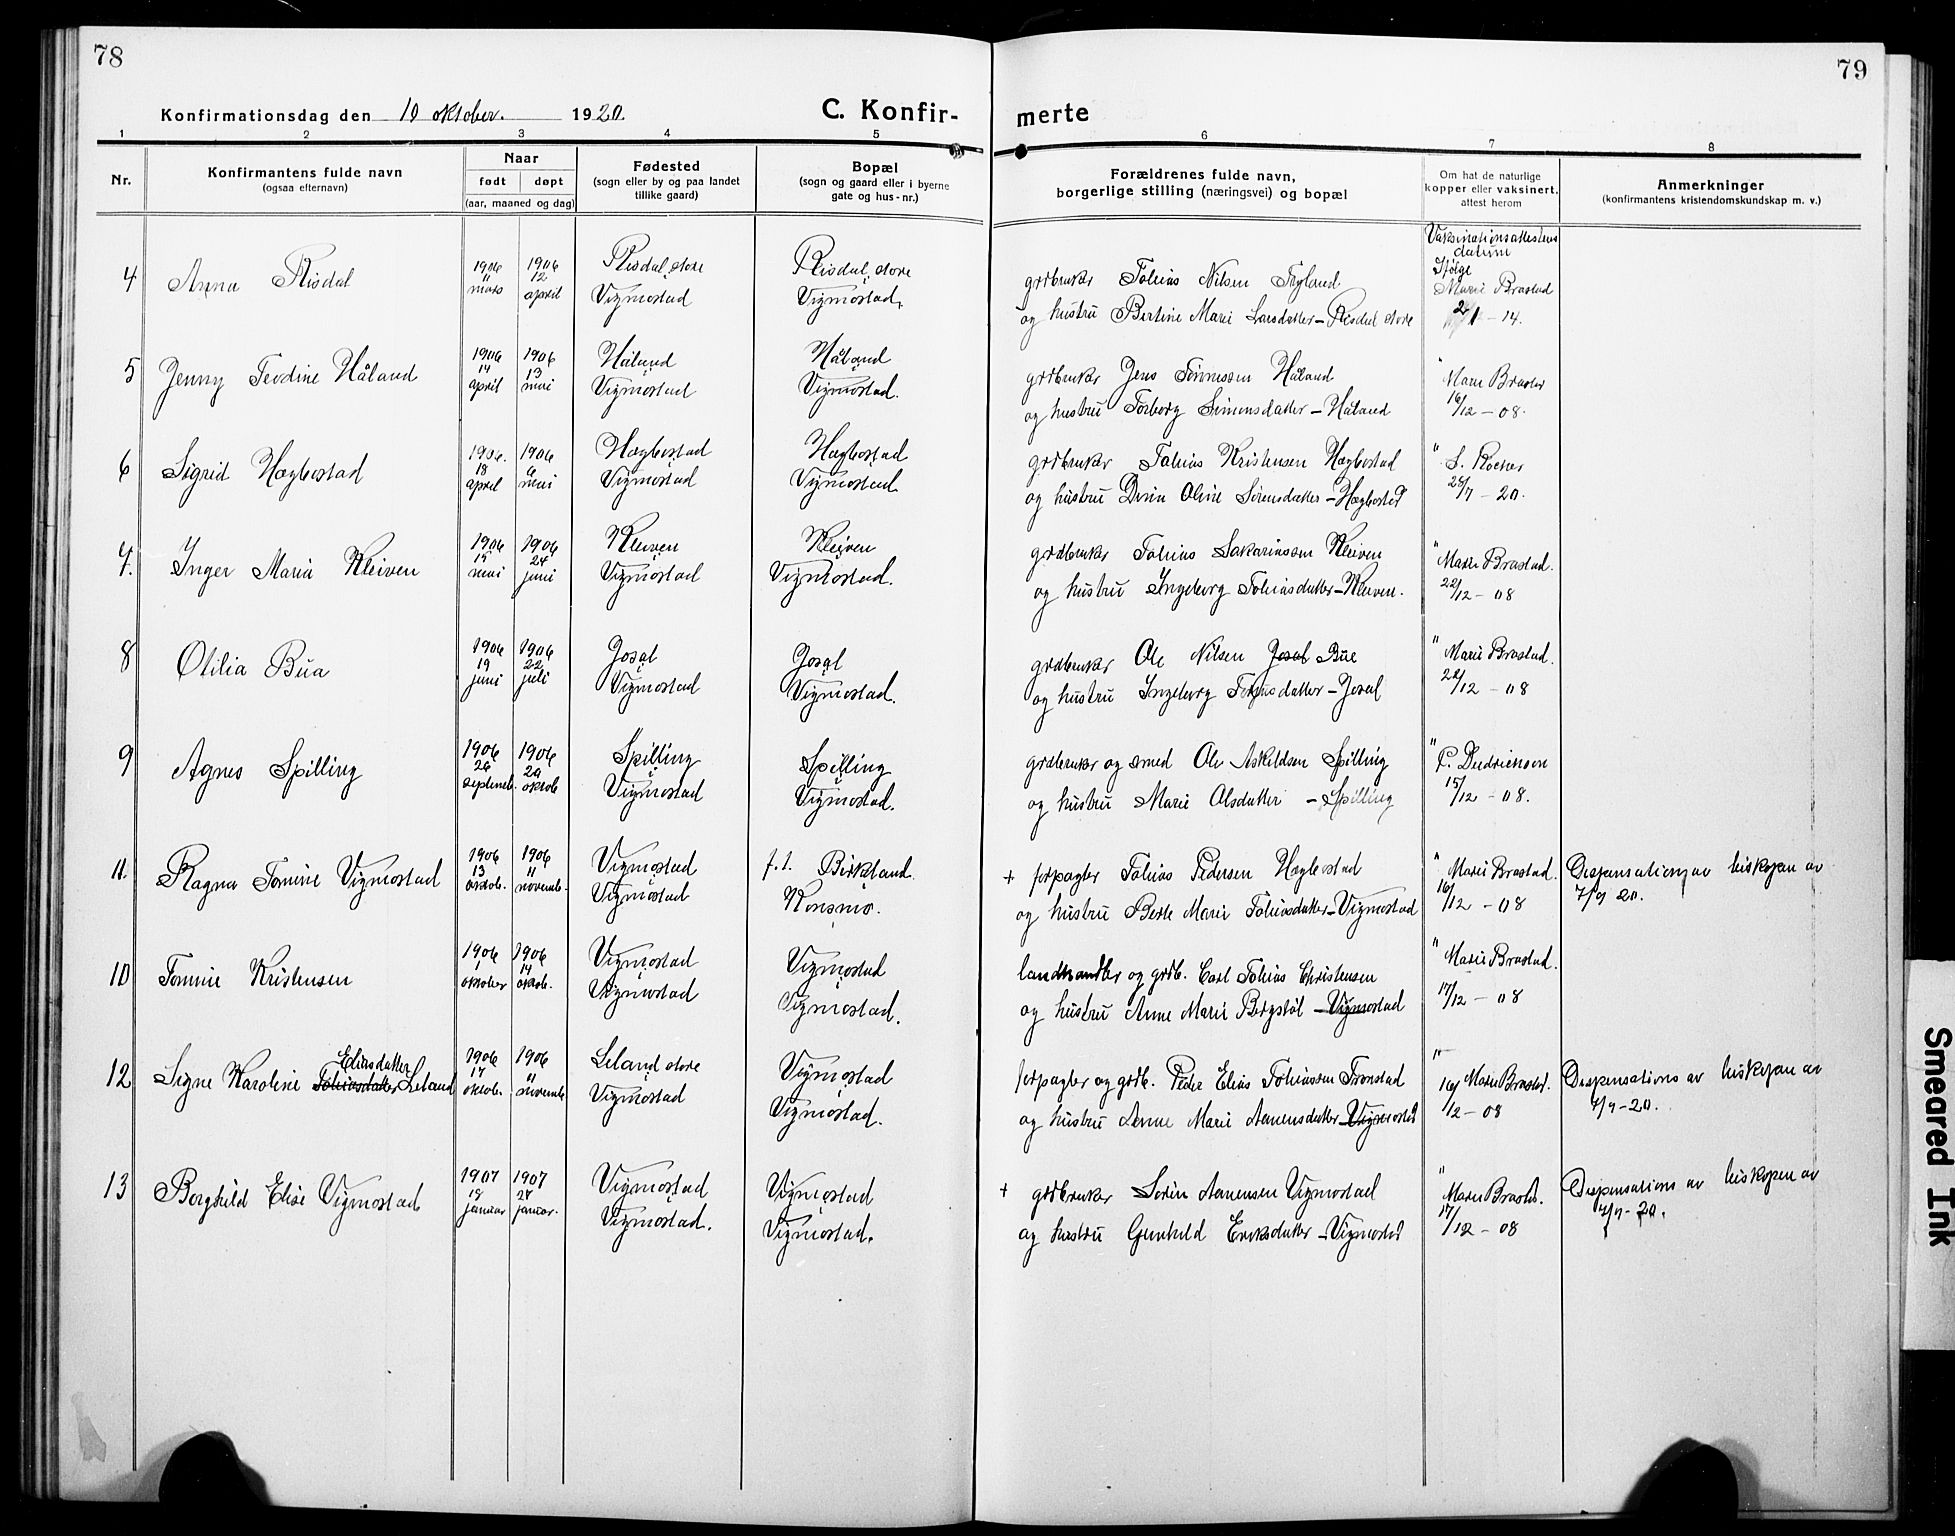 78
79
Konfirmationsdag den 10 oktober. 1920.
C. Konfirmerte
1 2 3 4 5 6 7 8
Nr.
Konfirmantens fulde navn
(ogsaa efternavn)
Naar
født døpt
(aar, maaned og dag)
Fødested
(sogn eller by og paa landet
tillike gaard)
Bopæl
(sogn og gaard eller i byerne
gate og hus-nr.)
Forældrenes fulde navn,
borgerlige stilling (næringsvei) og bopæl
Om hat de naturlige
kopper eller vaksinert,
attest herom
Anmerkninger
(konfirmantens kristendomskundskap m. v.)
4 Anna Risdal
1906 11 mars
1906 12 april
Risdal, store
Vigmostad
Risdal, store
Vigmostad,
grdbruker Tobias Nilsen Tryland
og hustru Bertine Marie Larsdatter – Risdal store
Vaksinationsattestens
datum
Ifølge
Marie Brastad
– 14.
5 Jenny Teodine Håland
1906 14 april
1906 13 mai
Håland
Vigmostad
Håland
Vigmostad.
grdbruker Jens Tønnessen Håland
og hustru Torborg Simonsdatter – Håland
" Marie Brastad
16/12 – 08.
6 Sigrid Hægbostad
1906. 18 april
1906 6 mai
Hægbostad
Vigmostad
Hægbostad
Vigmostad
grdbruker Tobias Kristensen Hægbostad
og hustru Oline Sørensdatter – Hægbostad
" S.
/7 – 20.
7. Inger Maria Kleiven
1906 15 mai
1906 24 juni
Kleiven
Vigmostad
Kleiven
Vigmostad.
grdbruker Tobias Sakariassen Kleiven
og hustru Ingeborg Tobiasdatter – Kleiven.
" Marie Brastad.
22/12 – 08
8 Otilia Bua
1906 19 juni
1906 22 juli
Josal
Vigmostad
Josal
Vigmostad.
grdbruker Ole Nilsen Josal Bue
og hustru Ingeborg – Josal
" Marie Brastad.
22/12 – 08
9 Agnes Spilling
1906 26 septemb.
1906 20 oktob
Spilling
Vigmostad
Spilling
Vigmostad.
grdbruker og smed Ole Askildsen Spilling
og hustru Marie Olsdatter – Spilling
" P. Didriksen
15/12 – 08.
11. Ragna Tomine Vigmostad
1906 13 oktob.
1906 11 novemb.
Vigmostad
Vigmostad
f. t. Birkeland.
Konsmo.
+ forpagter Tobias Pedersen Hægbostad
og hustru Berte Marie Tobiasdatter – Vigmostad
" Marie Brastad.
16/12 – 08
Dispensation av biskopen av
7/9 20.
10 Tomine Kristensen
1906 1 oktober
1906 14 oktob.
Vigmostad
Vigmostad
Vigmostad
Vigmostad.
landhandler og grdb. Carl Tobias Christensen
og hustru Anne Marie Bergstøl – Vigmostad
" Marie Brastad.
17/12 – 08
12 Signe Karoline Tobiasdatter Eliasdatter Leland
1906 17 oktob.
1906 11 novemb
Leland store
Vigmostad
Vigmostad
Vigmostad.
forpagter og grdb. Peder Elias Tobiassen Tronstad
og hustru Anne Marie Aanensdatter – Vigmostad
" 16/ Marie Brastad.
12 – 08
Dispensations av biskopen av
7/9 – 20.
13 Borghild Elise Vigmostad
1907 18 januar
1907 27 januar.
Vigmostad
Vigmostad.
Vigmostad
Vigmostad.
+ grdbruker Sørin Aanensen Vigmostad
og hustru Gunhild Eriksdatter – Vigmostad
" Marie Brastad.
17/12 – 08
Dispensations av biskopen av
7/9 – 20.
Smeared Ink